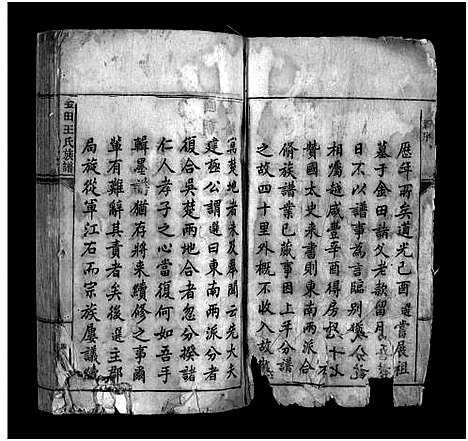 歷年所矣道光己酉選嘗展祖
墓于金田諸父老款留月
日不以譜事為言臨別猶
相囑越咸豐辛酉得房
贊國太史來書則東南兩派合
脩族譜業已蕆事因上平分譜
之故四十里外概不收入故
楚地者未及舉聞云先大夫
建極公謂選曰東南兩派分者
復合吳楚兩地合者忽分揆諸
仁人孝子之心當復何如吾手
輯墨譜猶存將來續修之事爾
輩有難辭其責者矣後選主郡
局族從軍江右而宗族屢議續
金田王氏族譜